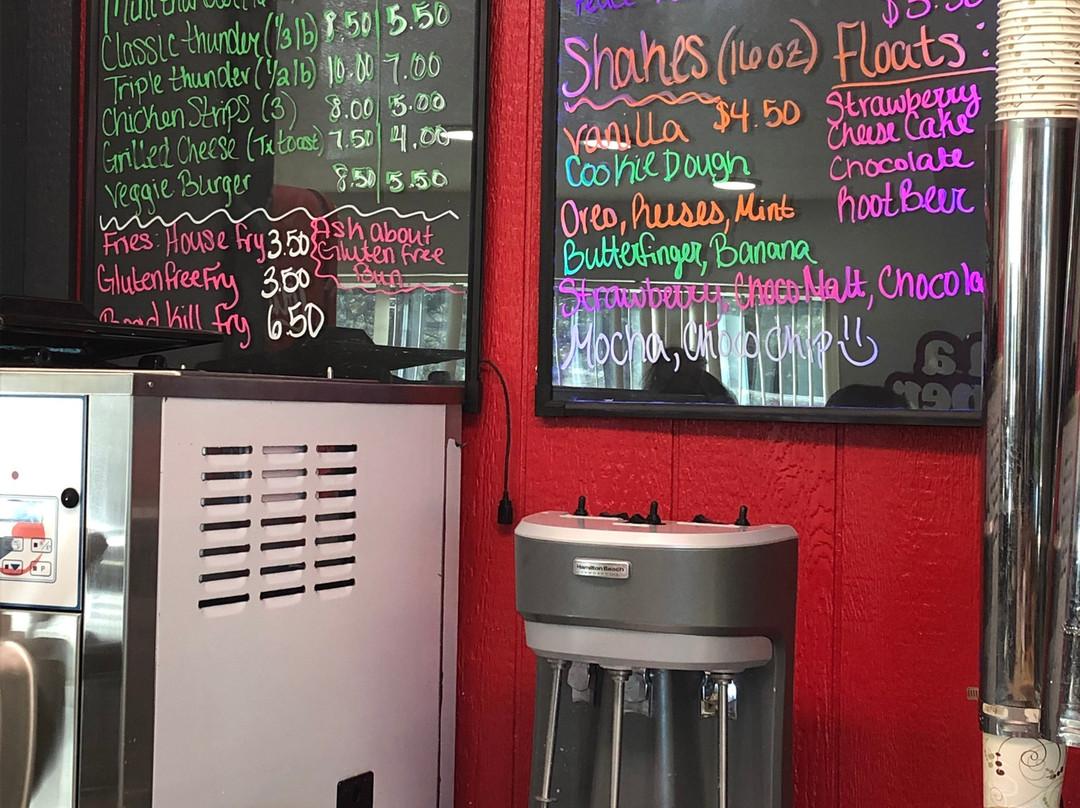 Classic thunder (1/3 lb) 8.50 5.50
Triple thunder (1/2 lb) 10.00 7.00
Chicken Strips (3) 8.00 5.00
Grilled Cheese (Tx toast) 7.50 4.00
Veggie Burger 8.50 5.50
Fries: House Fry 3.50
Gluten Free Fry 3.50
Road Kill fry 6.50
Ask about
Gluten free
Bun
$5.50
Shakes (16oz)
Vanilla $4.50
Cookie Dough
Oreo, Reeses, Mint
Butterfinger, Banana
Strawberry, Choco Malt, Chocola
Mocha, Choco Chip
Floats:
Strawberry
Cheese Cake
Chocolate
Root Beer
Hamilton Beach
P